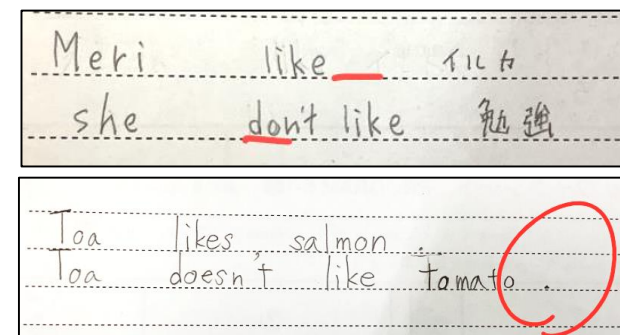 Meri like イルカ
she don't like 勉強
Toa likes, salmon.
Toa doesn't like tomato.